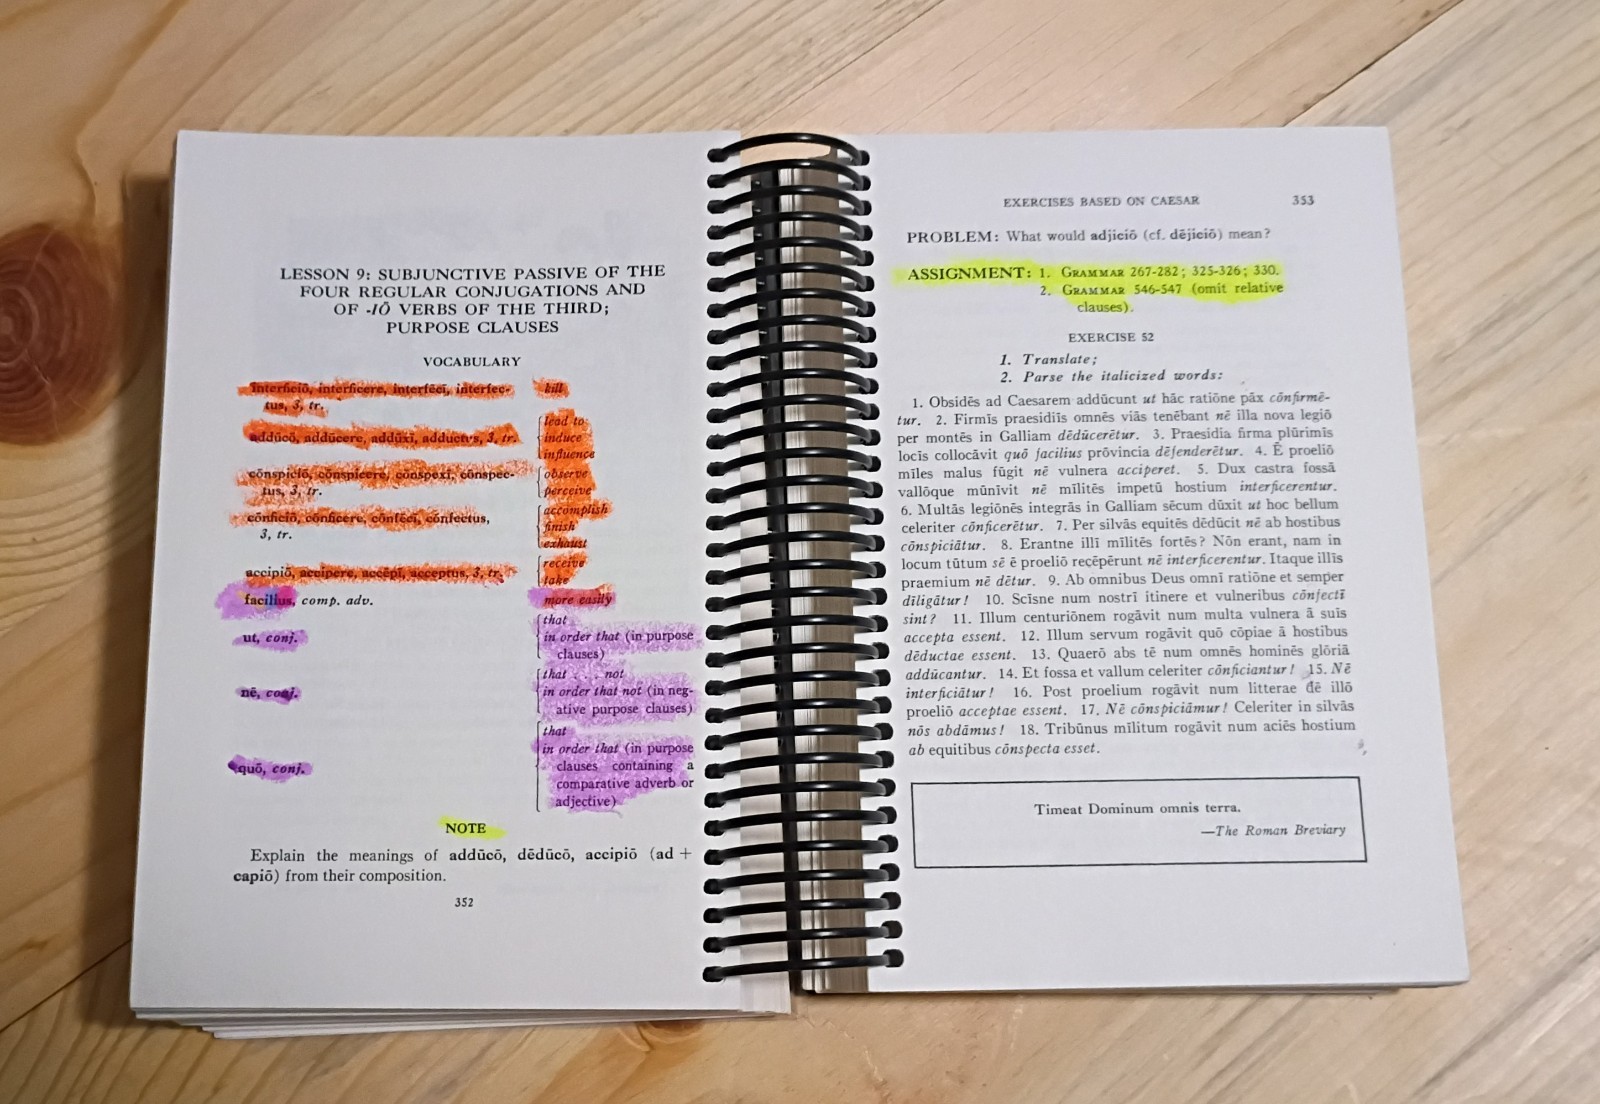 LESSON 9: SUBJUNCTIVE PASSIVE OF THE
FOUR REGULAR CONJUGATIONS AND
OF -IŌ VERBS OF THE THIRD;
PURPOSE CLAUSES
VOCABULARY
interficiō, interficere, interfēcī, interfec- kill
tus, 3, tr.
lead to
addūcō, addūcere, addūxī, adductus, 3, tr. induce
influence
cōnspiciō, cōnspicere, cōnspexī, cōnspec- observe
tus, 3, tr. perceive
accomplish
cōnficiō, cōnficere, cōnfēcī, cōnfectus, finish
3, tr. exhaust
receive
accipiō, accipere, accēpī, acceptus, 3, tr. take
facilius, comp. adv. more easily
that
ut, conj. in order that (in purpose
clauses)
that . . . not
nē, conj. in order that not (in neg-
ative purpose clauses)
that
in order that (in purpose
quō, conj. clauses containing a
comparative adverb or
adjective)
NOTE
Explain the meanings of addūcō, dēdūcō, accipiō (ad +
capiō) from their composition.
352
EXERCISES BASED ON CAESAR 353
PROBLEM: What would adjiciō (cf. dējiciō) mean?
ASSIGNMENT: 1. GRAMMAR 267-282; 325-326; 330.
2. GRAMMAR 546-547 (omit relative
clauses).
EXERCISE 52
1. Translate;
2. Parse the italicized words:
1. Obsidēs ad Caesarem addūcunt ut hāc ratiōne pāx cōnfirmē-
tur. 2. Firmīs praesidiīs omnēs viās tenēbant nē illa nova legiō
per montēs in Galliam dēdūcerētur. 3. Praesidia firma plūrimīs
locīs collocāvit quō facilius prōvincia dēfenderētur. 4. Ē proeliō
mīles malus fūgit nē vulnera acciperet. 5. Dux castra fossā
vallōque mūnīvit nē mīlitēs impetū hostium interficerentur.
6. Multās legiōnēs integrās in Galliam sēcum dūxit ut hoc bellum
celeriter cōnficerētur. 7. Per silvās equitēs dēdūcit nē ab hostibus
cōnspiciātur. 8. Erantne illī mīlitēs fortēs? Nōn erant, nam in
locum tūtum sē ē proeliō recēpērunt nē interficerentur. Itaque illīs
praemium nē dētur. 9. Ab omnibus Deus omnī ratiōne et semper
dīligātur! 10. Scīsne num nostrī itinere et vulneribus cōnfectī
sint? 11. Illum centuriōnem rogāvit num multa vulnera ā suīs
accepta essent. 12. Illum servum rogāvit quō cōpiae ā hostibus
dēductae essent. 13. Quaerō abs tē num omnēs hominēs glōriā
addūcantur. 14. Et fossa et vallum celeriter cōnficiantur! 15. Nē
interficiātur! 16. Post proelium rogāvit num litterae dē illō
proeliō acceptae essent. 17. Nē cōnspiciāmur! Celeriter in silvās
nōs abdāmus! 18. Tribūnus mīlitum rogāvit num aciēs hostium
ab equitibus cōnspecta esset.
Timeat Dominum omnis terra.
—The Roman Breviary